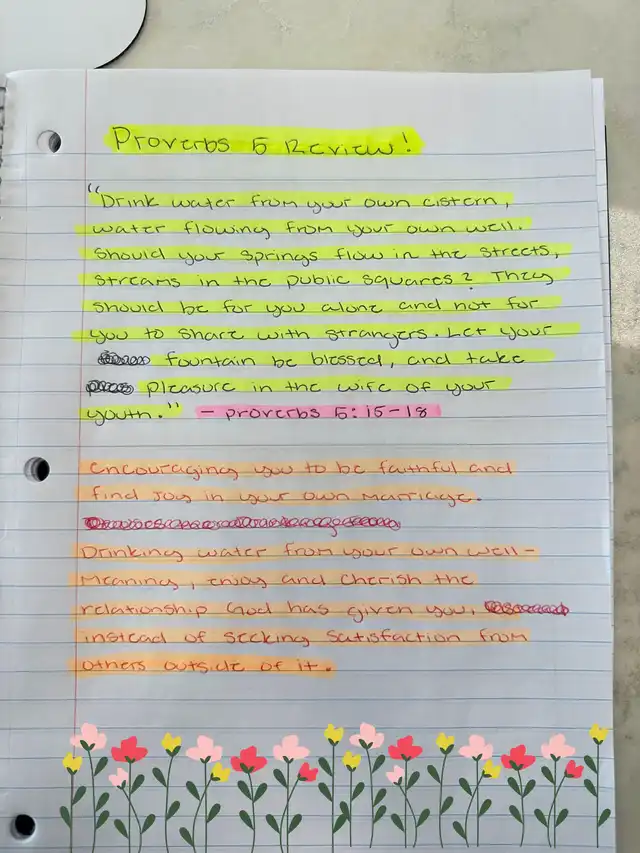 Proverbs 5 Review!
"Drink water from your own cistern,
water flowing from your own well.
Should your springs flow in the streets,
streams in the public squares? They
should be for you alone and not for
you to share with strangers. Let your
fountain be blessed, and take
pleasure in the wife of your
youth." - Proverbs 5:15-18
Encouraging you to be faithful and
find Joy in your own Marriage.
Drinking water from your own well-
Meaning, enjoy and cherish the
relationship God has given you,
instead of seeking satisfaction from
others outside of it.